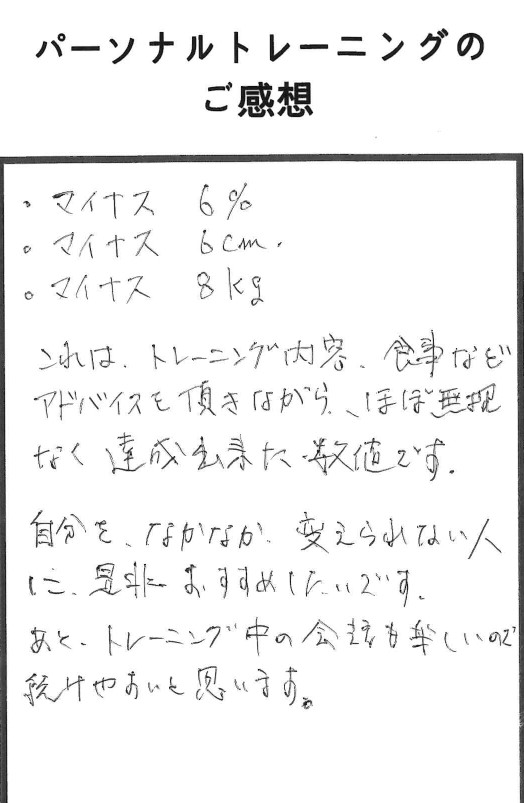 パーソナルトレーニングの
ご感想
・マイナス 6%
。マイナス 6cm.
。マイナス 8kg
これは、トレーニング内容、食事など
アドバイスを頂きながら、ほぼ無理
なく達成出来た数値です。
自分を、なかなか、変えられない人
に、是非おすすめしたいです。
あと、トレーニング中の会話も楽しいので
続けやすいと思います。